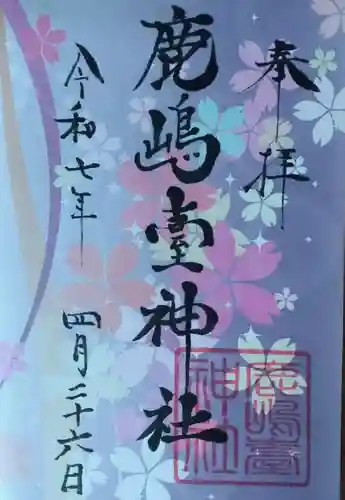 奉拝
鹿嶋臺神社
令和七年 四月二十六日
鹿嶋臺
神社